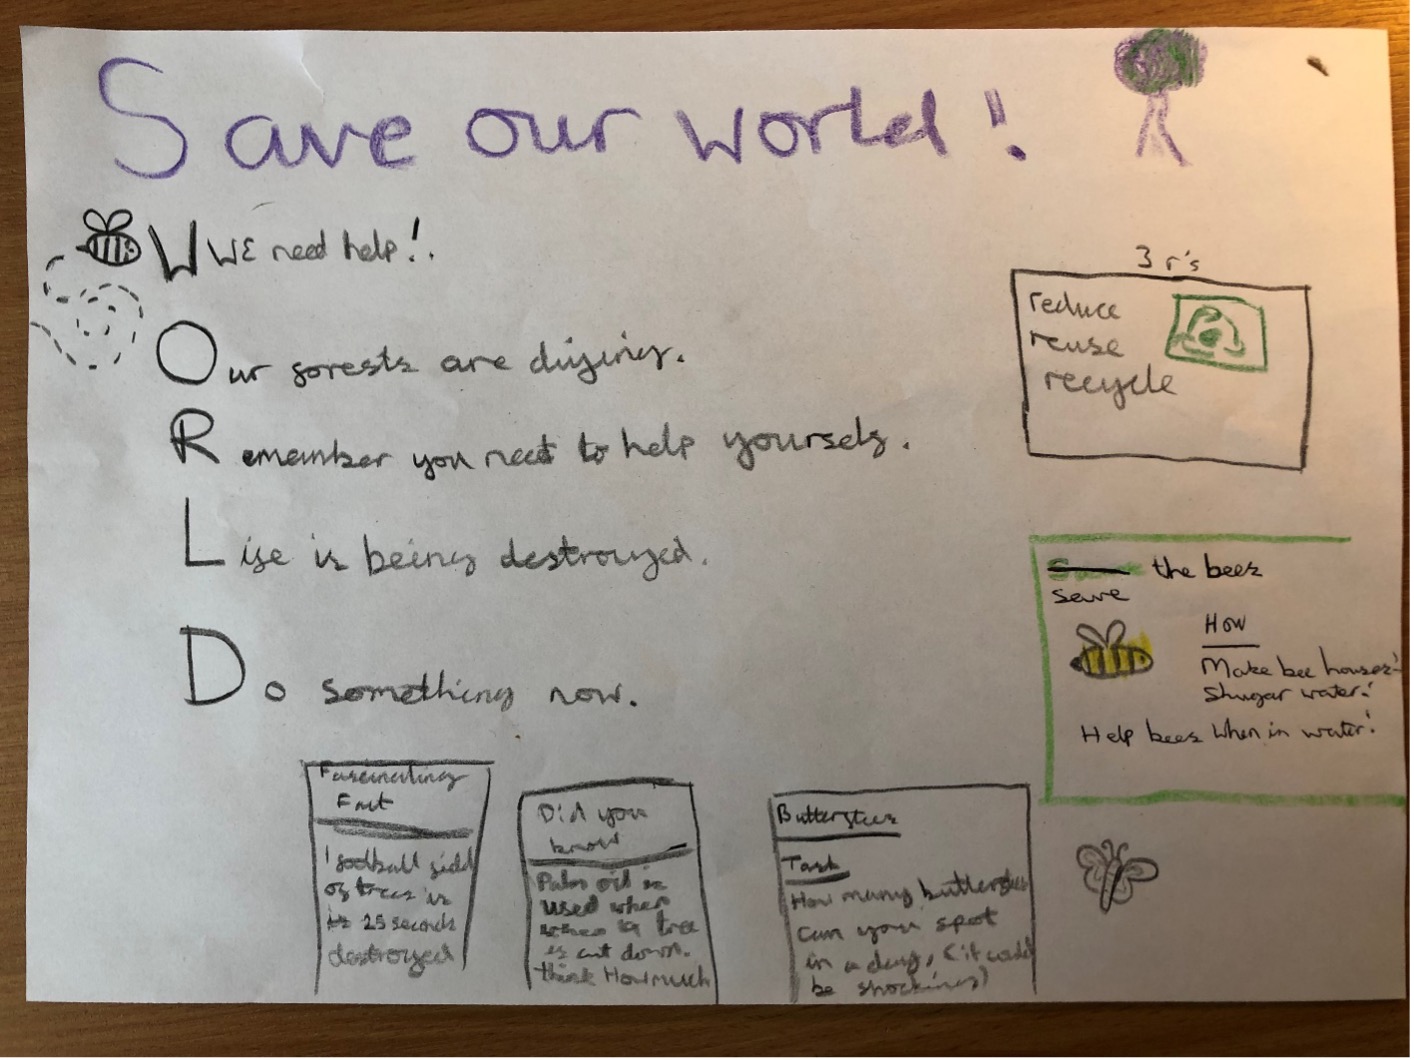 Save our world!
W WE need help!.
Our forests are diying.
Remember you need to help yourself.
Life is being destroyed.
Do something now.
3 r's
reduce
reuse
recycle
the bees
save
How
Make bee houses!
Shugar water!
Help bees when in water!
Fascinating
Fact
1 football field
of trees is
is 25 seconds
destroyed
Did you
know
Palm oil is
used when
when a tree
is cut down.
think How much
Butterflies
Task
How many butterflies
can you spot
in a day, (it could
be shocking)